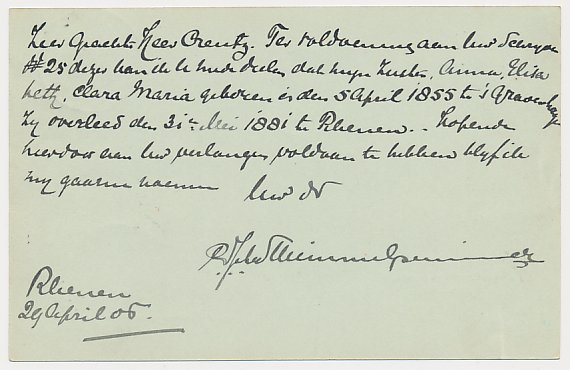 Zeer Geachte Heer Creutz. Ter voldoening aan Uw schryven
dd 25 dezer kan ik U mede deelen dat myn zuster, Anna, Elisa
beth, Clara Maria geboren is den 5 April 1855 te 's Gravenhage
Zy overleed den 31n Mei 1881 te Rhenen. - Hopende
hierdoor aan Uw verlangen voldaan te hebben blyf ik
my gaarne noemen Uw dr
Rhenen
29 April 05.